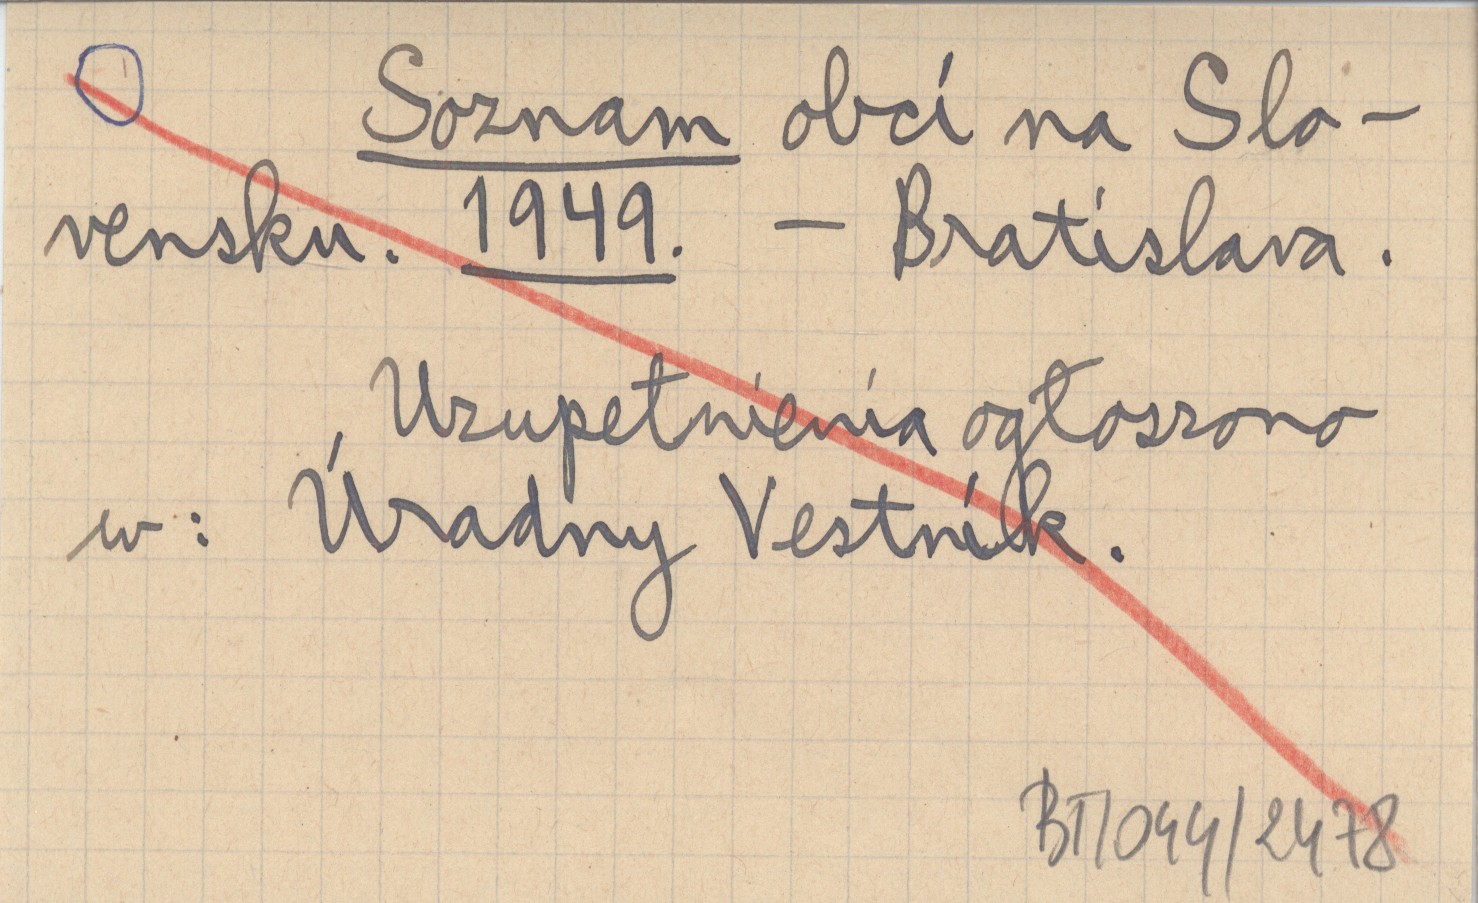 Soznam obcí na Slo-
vensku. 1949. - Bratislava.
Uzupełnienia ogłoszono
w: Úradny Vestník.
BT/044/2478